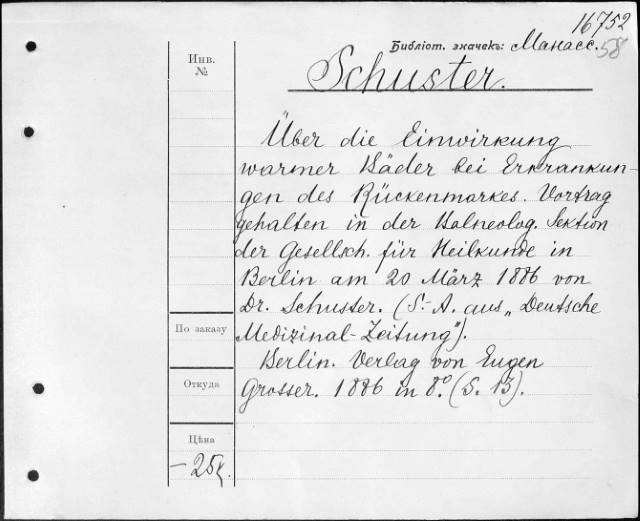 16752
Библіот. значекъ: Манасс. 58
Инв.
№
Schuster.
Über die Einwirkung
warmer Bäder bei Erkrankun-
gen des Rückenmarkes. Vortrag
gehalten in der Balneolog. Sektion
der Gesellsch. für Heilkunde in
Berlin am 20 März 1886 von
Dr. Schuster. (S.-A. aus „Deutsche
Medizinal-Zeitung").
Berlin. Verlag von Eugen
Grosser. 1886 in 8.° (S. 13).
По заказу
Откуда
Цѣна
– 25к.